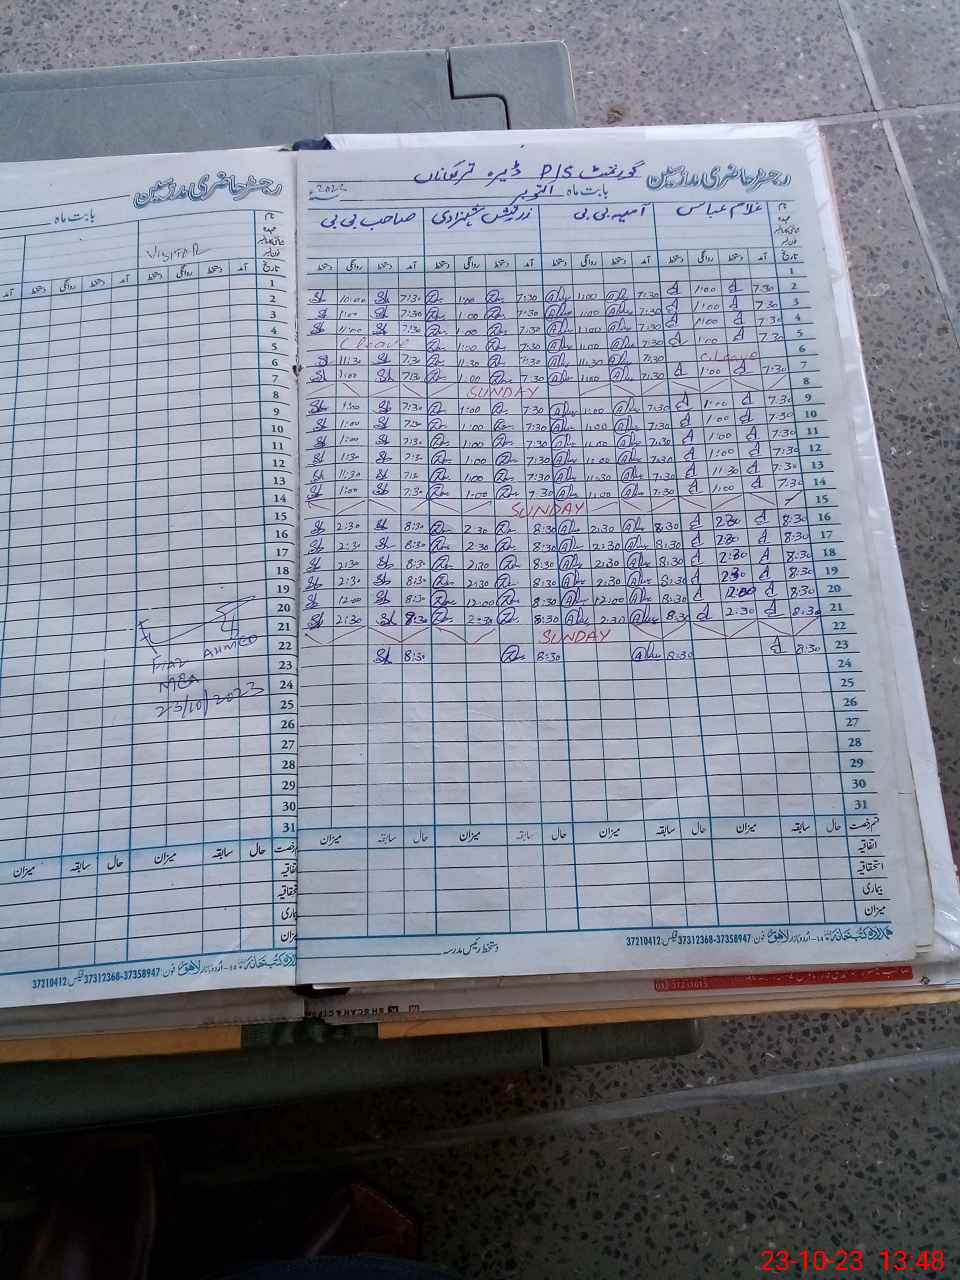 رجسٹر حاضری مدرسین
گورنمنٹ P/S ڈیرہ ترکھاناں
بابت ماہ اکتوبر
نام غلام عباس آسیہ بی بی شہزادی صاحب بی بی
تاریخ آمد دستخط روانگی دستخط آمد دستخط روانگی دستخط آمد دستخط روانگی دستخط آمد دستخط روانگی دستخط
1
2 7:30 1:00 7:30 1:00 7:30 1:00 7:30 10:00
3 7:30 1:00 7:30 1:00 7:30 1:00 7:30 1:00
4 7:30 1:00 7:30 1:00 7:30 1:00 7:30
5 7:30 1:00 7:30 1:00 7:30 1:00 C Leave
6 C. Leave 7:30 11:30 7:30 11:30 7:30 11:30
7 7:30 1:00 7:30 1:00 7:30 1:00 7:30 1:00
8 SUNDAY
9 7:30 1:00 7:30 1:00 7:30 1:00 7:30 1:00
10 7:30 1:00 7:30 1:00 7:30 1:00 7:30 1:00
11 7:30 1:00 7:30 1:00 7:30 1:00 7:30 1:00
12 7:30 1:00 7:30 1:00 7:30 1:00 7:30
13 7:30 11:30 7:30 11:30 7:30 1:00 11:30
14 7:30 1:00 7:30 1:00 7:30 1:00 7:30 1:00
15 SUNDAY
16 8:30 2:30 8:30 2:30 8:30 2:30 8:30 2:30
17 8:30 2:30 8:30 2:30 8:30 2:30 8:30 2:30
18 8:30 2:30 8:30 2:30 8:30 2:30 8:30 2:30
19 8:30 2:30 8:30 2:30 8:30 2:30 8:30 2:30
20 8:30 12:00 8:30 12:00 8:30 12:00 8:30 12:00
21 8:30 2:30 8:30 2:30 8:30 2:30 8:30 2:30
22 SUNDAY
23 8:30 8:30 8:30 8:30
24
25
26
27
28
29
30
31
قسم رخصت حال سابقہ میزان حال سابقہ میزان حال سابقہ میزان حال سابقہ میزان
اتفاقیہ
استحقاقیہ
بیماری
میزان
دستخط رئیس مدرسہ
اُردو بازار لاہور فون: 37312368-37358947 فیکس: 37210412
رجسٹر حاضری مدرسین
بابت ماہ
VISITOR
تاریخ آمد دستخط روانگی دستخط آمد دستخط روانگی دستخط آمد
1
2
3
4
5
6
7
8
9
10
11
12
13
14
15
16
17
18
19
20
21
22
23
24
25
26
27
28
29
30
31
AHMED
MEA
23/10/2023
حال سابقہ میزان حال سابقہ میزان
اُردو بازار لاہور فون: 37312368-37358947 فیکس: 37210412
23-10-23 13:48